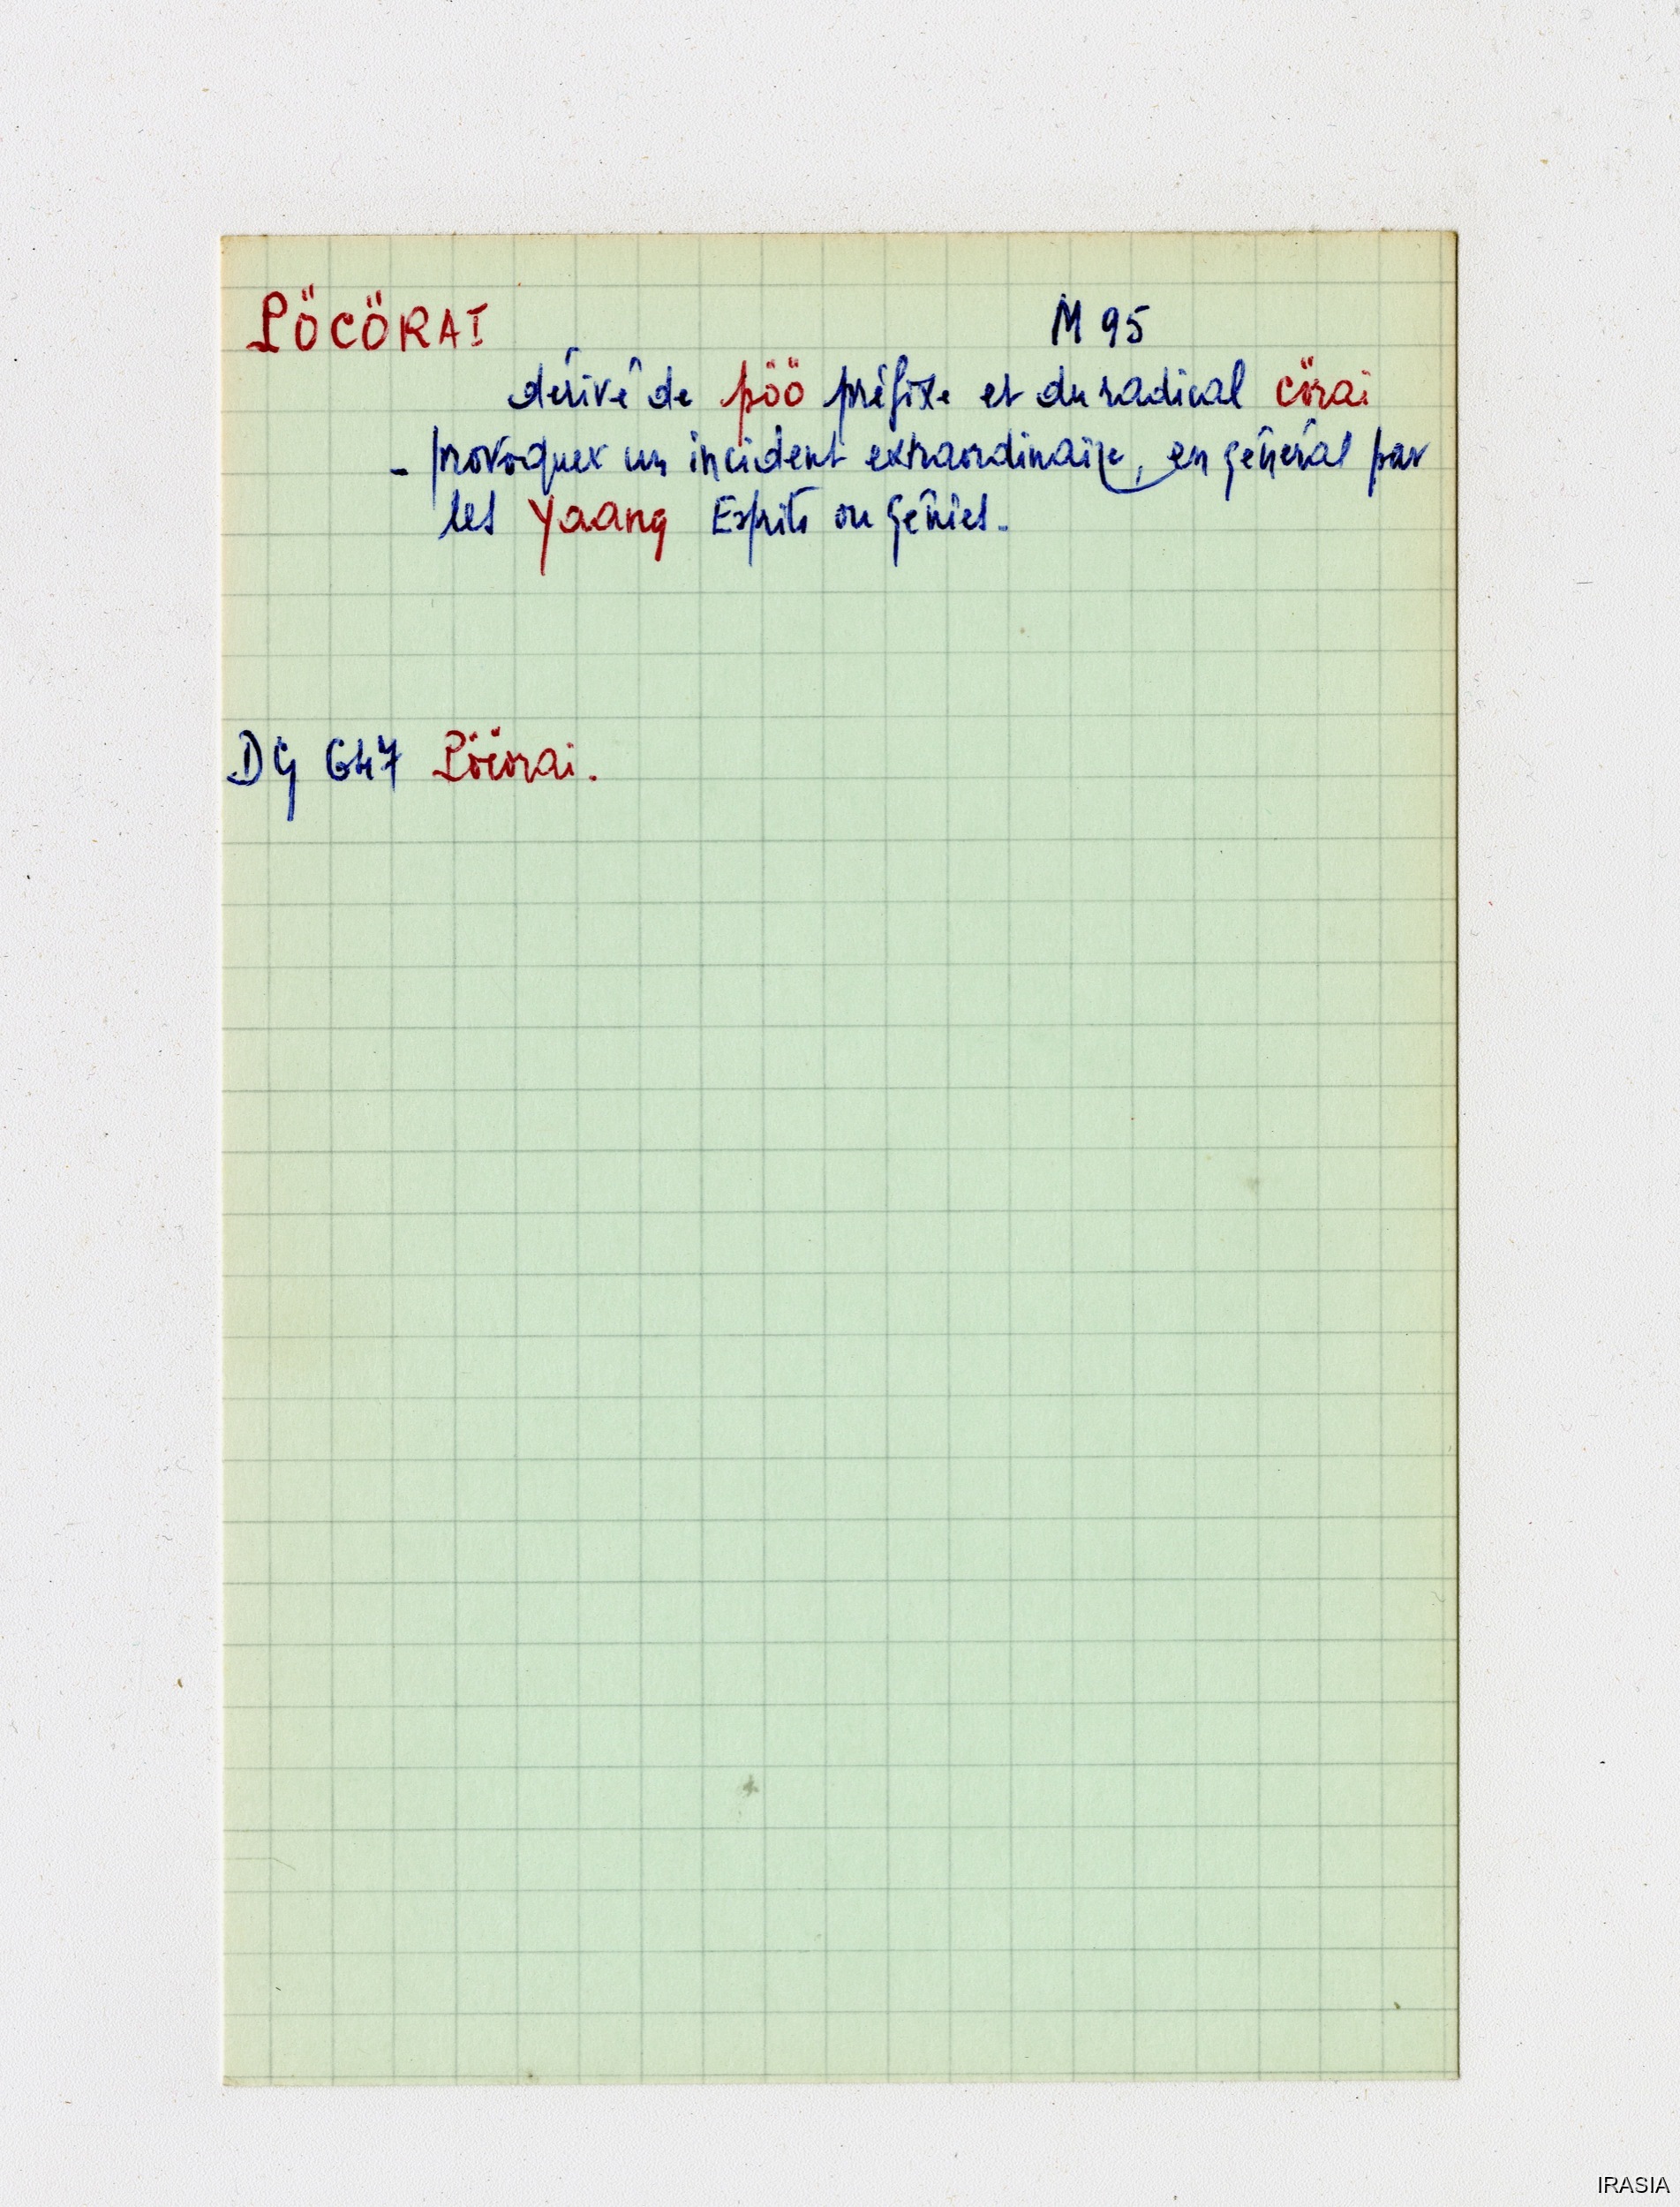 PÖCÖRAI M 95
dérivé de pöö préfixe et du radical cörai
- provoquer un incident extraordinaire, en général par
les Yaang Esprits ou Génies.
DG G47 Pöcörai.
IRASIA